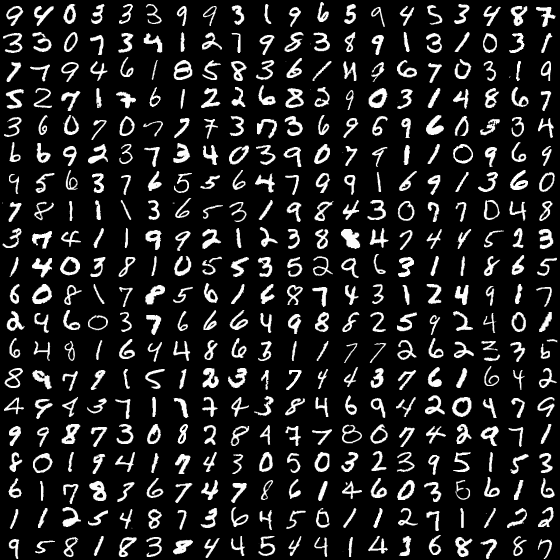 9 4 0 3 3 3 9 9 3 1 9 6 5 9 4 5 3 4 8 7
3 3 0 7 3 4 1 2 7 9 8 3 8 9 1 3 1 0 3 1
7 7 9 4 6 1 8 5 8 3 6 1 4 9 6 7 0 3 1 9
5 2 7 1 7 6 1 2 2 6 8 2 9 0 3 1 4 8 6 7
3 6 0 7 0 7 7 7 3 7 3 6 9 6 9 6 0 3 3 4
6 6 9 2 3 7 3 4 0 3 9 0 7 9 1 1 0 9 6 9
9 5 6 3 7 6 5 5 6 4 7 9 9 1 6 9 1 3 6 0
7 8 1 1 1 3 6 5 3 1 9 8 4 3 0 7 7 0 4 8
3 7 4 1 1 9 9 2 1 2 3 8 8 4 7 4 4 5 2 3
1 4 0 3 8 1 0 5 5 3 5 2 9 6 3 1 1 8 6 5
6 0 8 1 7 8 5 6 1 6 8 7 4 3 1 2 4 9 1 7
2 4 6 0 3 7 6 6 6 4 9 8 8 2 5 9 2 4 0 1
6 4 8 1 6 4 4 8 6 3 1 1 7 7 2 6 2 3 3 5
8 9 7 9 1 5 1 2 3 1 7 4 4 3 7 6 1 6 4 2
4 9 4 3 7 1 1 7 4 3 8 4 6 9 4 2 0 4 7 9
9 9 8 7 3 0 8 2 8 4 7 7 8 0 7 4 2 9 7 1
8 0 1 9 4 1 7 4 3 0 5 0 3 2 3 9 5 1 5 3
6 1 7 8 3 6 7 4 7 8 6 1 4 6 0 3 5 6 1 6
1 1 2 5 4 8 7 3 6 4 5 0 1 1 2 7 1 1 2 2
9 5 8 1 8 3 8 4 4 5 4 4 1 4 3 6 8 7 8 7